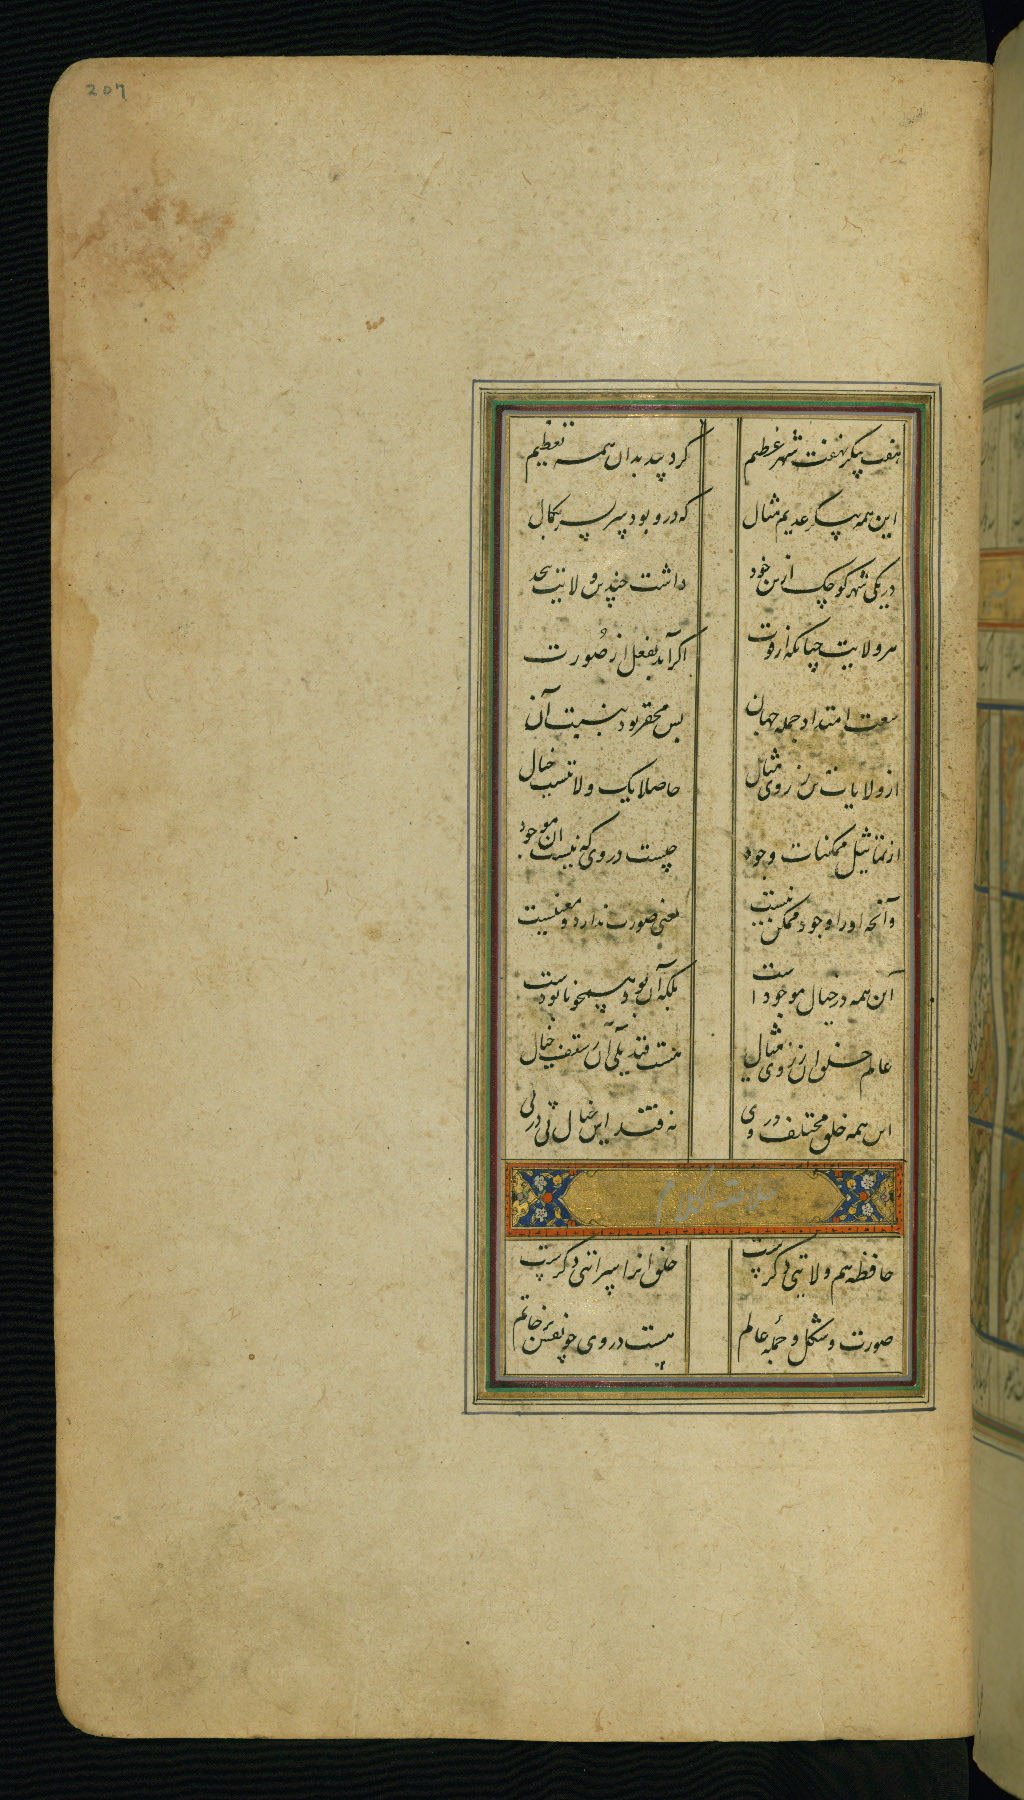 207
هفت پیکر نهفت شهر عظیم کرد پدید بدان همه تعظیم
این همه پیکر عدیم مثال که درو بود سربسر بکمال
در یکی شهر کوچک از بن خود داشت چندین ولایت بیحد
هر ولایت چنانکه از قوت اکر آید بفعل از صورت
سعت امتداد جمله جهان بس محقر بود بنسبت آن
از ولایات تن ز روی مثال حاصلا یک ولاتست خیال
از تماثیل ممکنات وجود چیست در وی که نیست آن موجود
وآنچه او را وجود ممکن نیست یعنی صورت ندارد و معنیست
آن همه در خیال موجود است بلکه آن بود همچو نابودست
عالم خلق ازان ز روی مثال هست قندیلی آن ز سقف خیال
این همه خلق مختلف در وی نه فتند این خیال پی در پی
کلام
حافظه هم ولایتی دکر ست خلق انرا سرائتی دکرست
صورت و شکل و جمله عالم هست در وی چو نقش بر خاتم